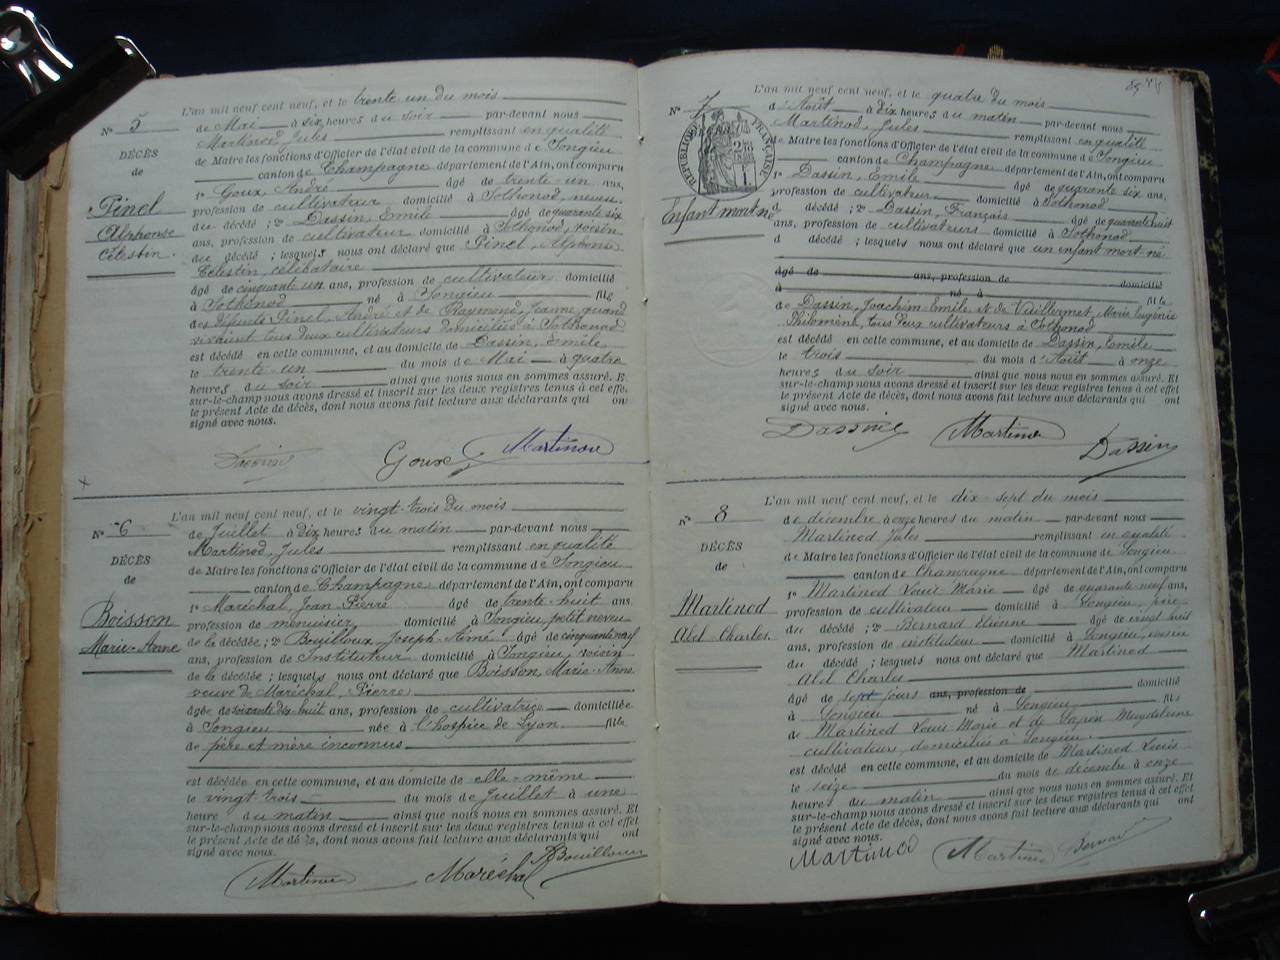 N° 5
DÉCÈS
de
Pinel
Alphonse
Célestin.
L'an mil neuf cent neuf, et le trente-un du mois
de Mai à six heures du soir par-devant nous
Martinod, Jules remplissant en qualité
de Maire les fonctions d'Officier de l'état civil de la commune de Songieu
canton de Champagne département de l'Ain, ont comparu
1° Goux, André âgé de trente-un ans,
profession de cultivateur domicilié à Sothonod, neveu
du décédé ; 2° Dassin, Emile âgé de quarante six
ans, profession de cultivateur domicilié à Sothonod, voisin
du décédé ; lesquels nous ont déclaré que Pinel, Alphonse
Célestin, célibataire
âgé de cinquante un ans, profession de cultivateur domicilié
à Sothonod né à Songieu fils
des défunts Pinel, André et de Raymond, Jeanne, quand
vivaient tous deux cultivateurs domiciliés à Sothonod
est décédé en cette commune, et au domicile de Dassin, Emile
le trente-un du mois de Mai à quatre
heures du soir ainsi que nous nous en sommes assuré. Et
sur-le-champ nous avons dressé et inscrit sur les deux registres tenus à cet effet
le présent Acte de décès, dont nous avons fait lecture aux déclarants qui ont
signé avec nous.
Goux Martinod
N° 6
DÉCÈS
de
Boisson
Marie-Anne
L'an mil neuf cent neuf, et le vingt-trois du mois
de Juillet à dix heures du matin par-devant nous
Martinod, Jules remplissant en qualité
de Maire les fonctions d'Officier de l'état civil de la commune de Songieu
canton de Champagne département de l'Ain, ont comparu
1° Maréchal, Jean Pierre âgé de trente-huit ans
profession de menuisier domicilié à Songieu, petit neveu
de la décédée ; 2° Bouilloux, Joseph-Aimé âgé de cinquante neuf
ans, profession de Instituteur domicilié à Songieu, voisin
de la décédée ; lesquels nous ont déclaré que Boisson, Marie-Anne
veuve de Maréchal, Pierre
âgée de soixante dix huit ans, profession de cultivatrice domiciliée
à Songieu née à l'hospice de Lyon fille
de père et mère inconnus
est décédée en cette commune, et au domicile de elle-même
le vingt-trois du mois de Juillet à une
heure du matin ainsi que nous nous en sommes assuré. Et
sur-le-champ nous avons dressé et inscrit sur les deux registres tenus à cet effet
le présent Acte de décès, dont nous avons fait lecture aux déclarants qui ont
signé avec nous.
Martinod Maréchal Bouilloux
N° 7
RÉPUBLIQUE FRANÇAISE
Enfant mort né
L'an mil neuf cent neuf, et le quatre du mois
d'Août à dix heures du matin par-devant nous
Martinod, Jules remplissant en qualité
de Maire les fonctions d'Officier de l'état civil de la commune de Songieu
canton de Champagne département de l'Ain, ont comparu
1° Dassin, Emile âgé de quarante six ans,
profession de cultivateur domicilié à Sothonod
d décédé ; 2° Dassin, Français âgé de quarante huit
ans, profession de cultivateurs domicilié à Sothonod
d décédé ; lesquels nous ont déclaré que un enfant mort-né
âgé de ans, profession de domicilié
à né à fils
de Dassin, Joachim Emile et de Vuillermet, Marie Eugénie
Philomène, tous deux cultivateurs à Sothonod
est décédé en cette commune, et au domicile de Dassin, Emile
le trois du mois d'Août à onze
heures du soir ainsi que nous nous en sommes assuré. Et
sur-le-champ nous avons dressé et inscrit sur les deux registres tenus à cet effet
le présent Acte de décès, dont nous avons fait lecture aux déclarants qui ont
signé avec nous.
Dassin Martinod Dassin
N° 8
DÉCÈS
de
Martinod
Abel Charles.
L'an mil neuf cent neuf, et le dix-sept du mois
de décembre à onze heures du matin par-devant nous
Martinod Jules remplissant en qualité
de Maire les fonctions d'Officier de l'état civil de la commune de Songieu
canton de Champagne département de l'Ain, ont comparu
1° Martinod Louis Marie âgé de quarante neuf ans,
profession de cultivateur domicilié à Songieu, père
du décédé ; 2° Bernard Etienne âgé de vingt huit
ans, profession de instituteur domicilié à Songieu, voisin
du décédé ; lesquels nous ont déclaré que Martinod
Abel Charles
âgé de sept jours ans, profession de domicilié
à Songieu né à Songieu fils
de Martinod Louis Marie et de Magdeleine
cultivateurs, domiciliés à Songieu.
est décédé en cette commune, et au domicile de Martinod Louis
le seize du mois de décembre à onze
heures du matin ainsi que nous nous en sommes assuré. Et
sur-le-champ nous avons dressé et inscrit sur les deux registres tenus à cet effet
le présent Acte de décès, dont nous avons fait lecture aux déclarants qui ont
signé avec nous.
Martinod Martinod Bernard